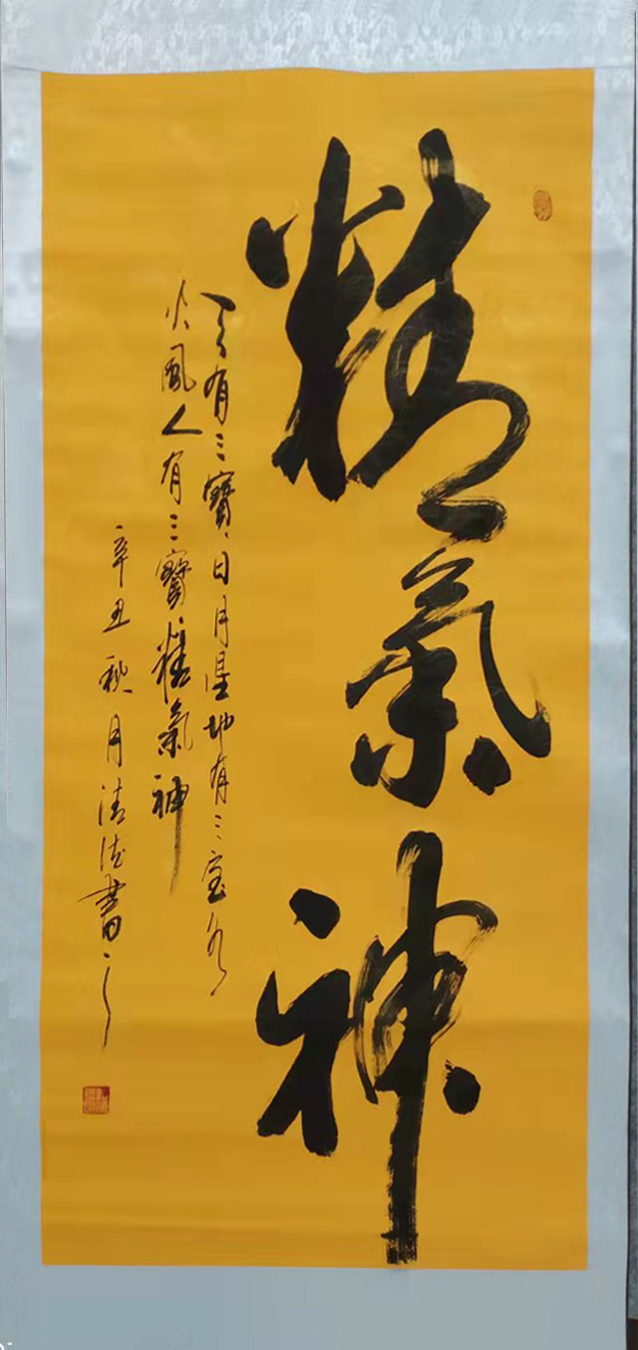 精氣神
天有三寶日月星地有三宝水
火風人有三寶精氣神
辛丑秋月清德書之